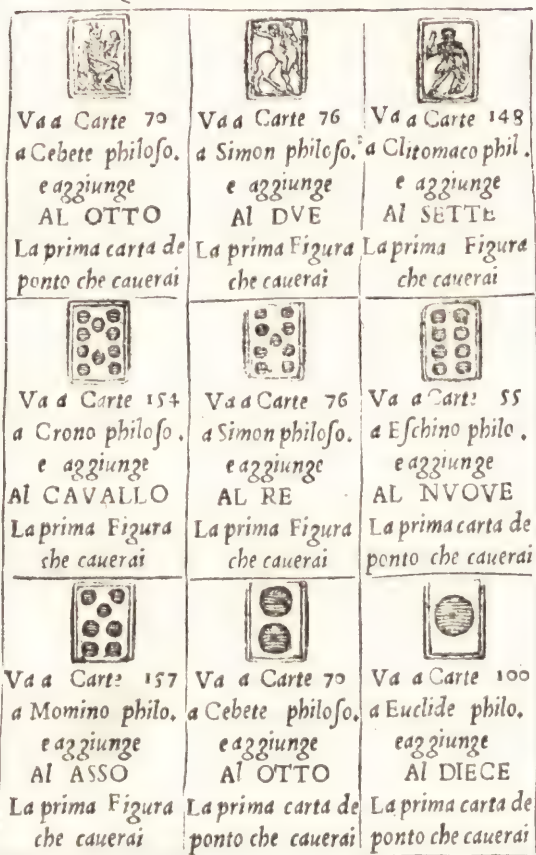 Va a Carte 70
a Cebete philoſo.
e aggiunge
AL OTTO
La prima carta de
ponto che cauerai
Va a Carte 76
a Simon philoſo.
e aggiunge
Al DVE
La prima Figura
che cauerai
Va a Carte 148
a Clitomaco phil.
e aggiunge
Al SETTE
La prima Figura
che cauerai
Va a Carte 154
a Crono philoſo.
e aggiunge
Al CAVALLO
La prima Figura
che cauerai
Va a Carte 76
a Simon philoſo.
e aggiunge
AL RE
La prima Figura
che cauerai
Va a Carte 55
a Eſchino philo.
e aggiunge
AL NVOVE
La prima carta de
ponto che cauerai
Va a Carte 157
a Momino philo.
e aggiunge
Al ASSO
La prima Figura
che cauerai
Va a Carte 70
a Cebete philoſo.
e aggiunge
Al OTTO
La prima carta de
ponto che cauerai
Va a Carte 100
a Euclide philo.
e aggiunge
Al DIECE
La prima carta de
ponto che cauerai